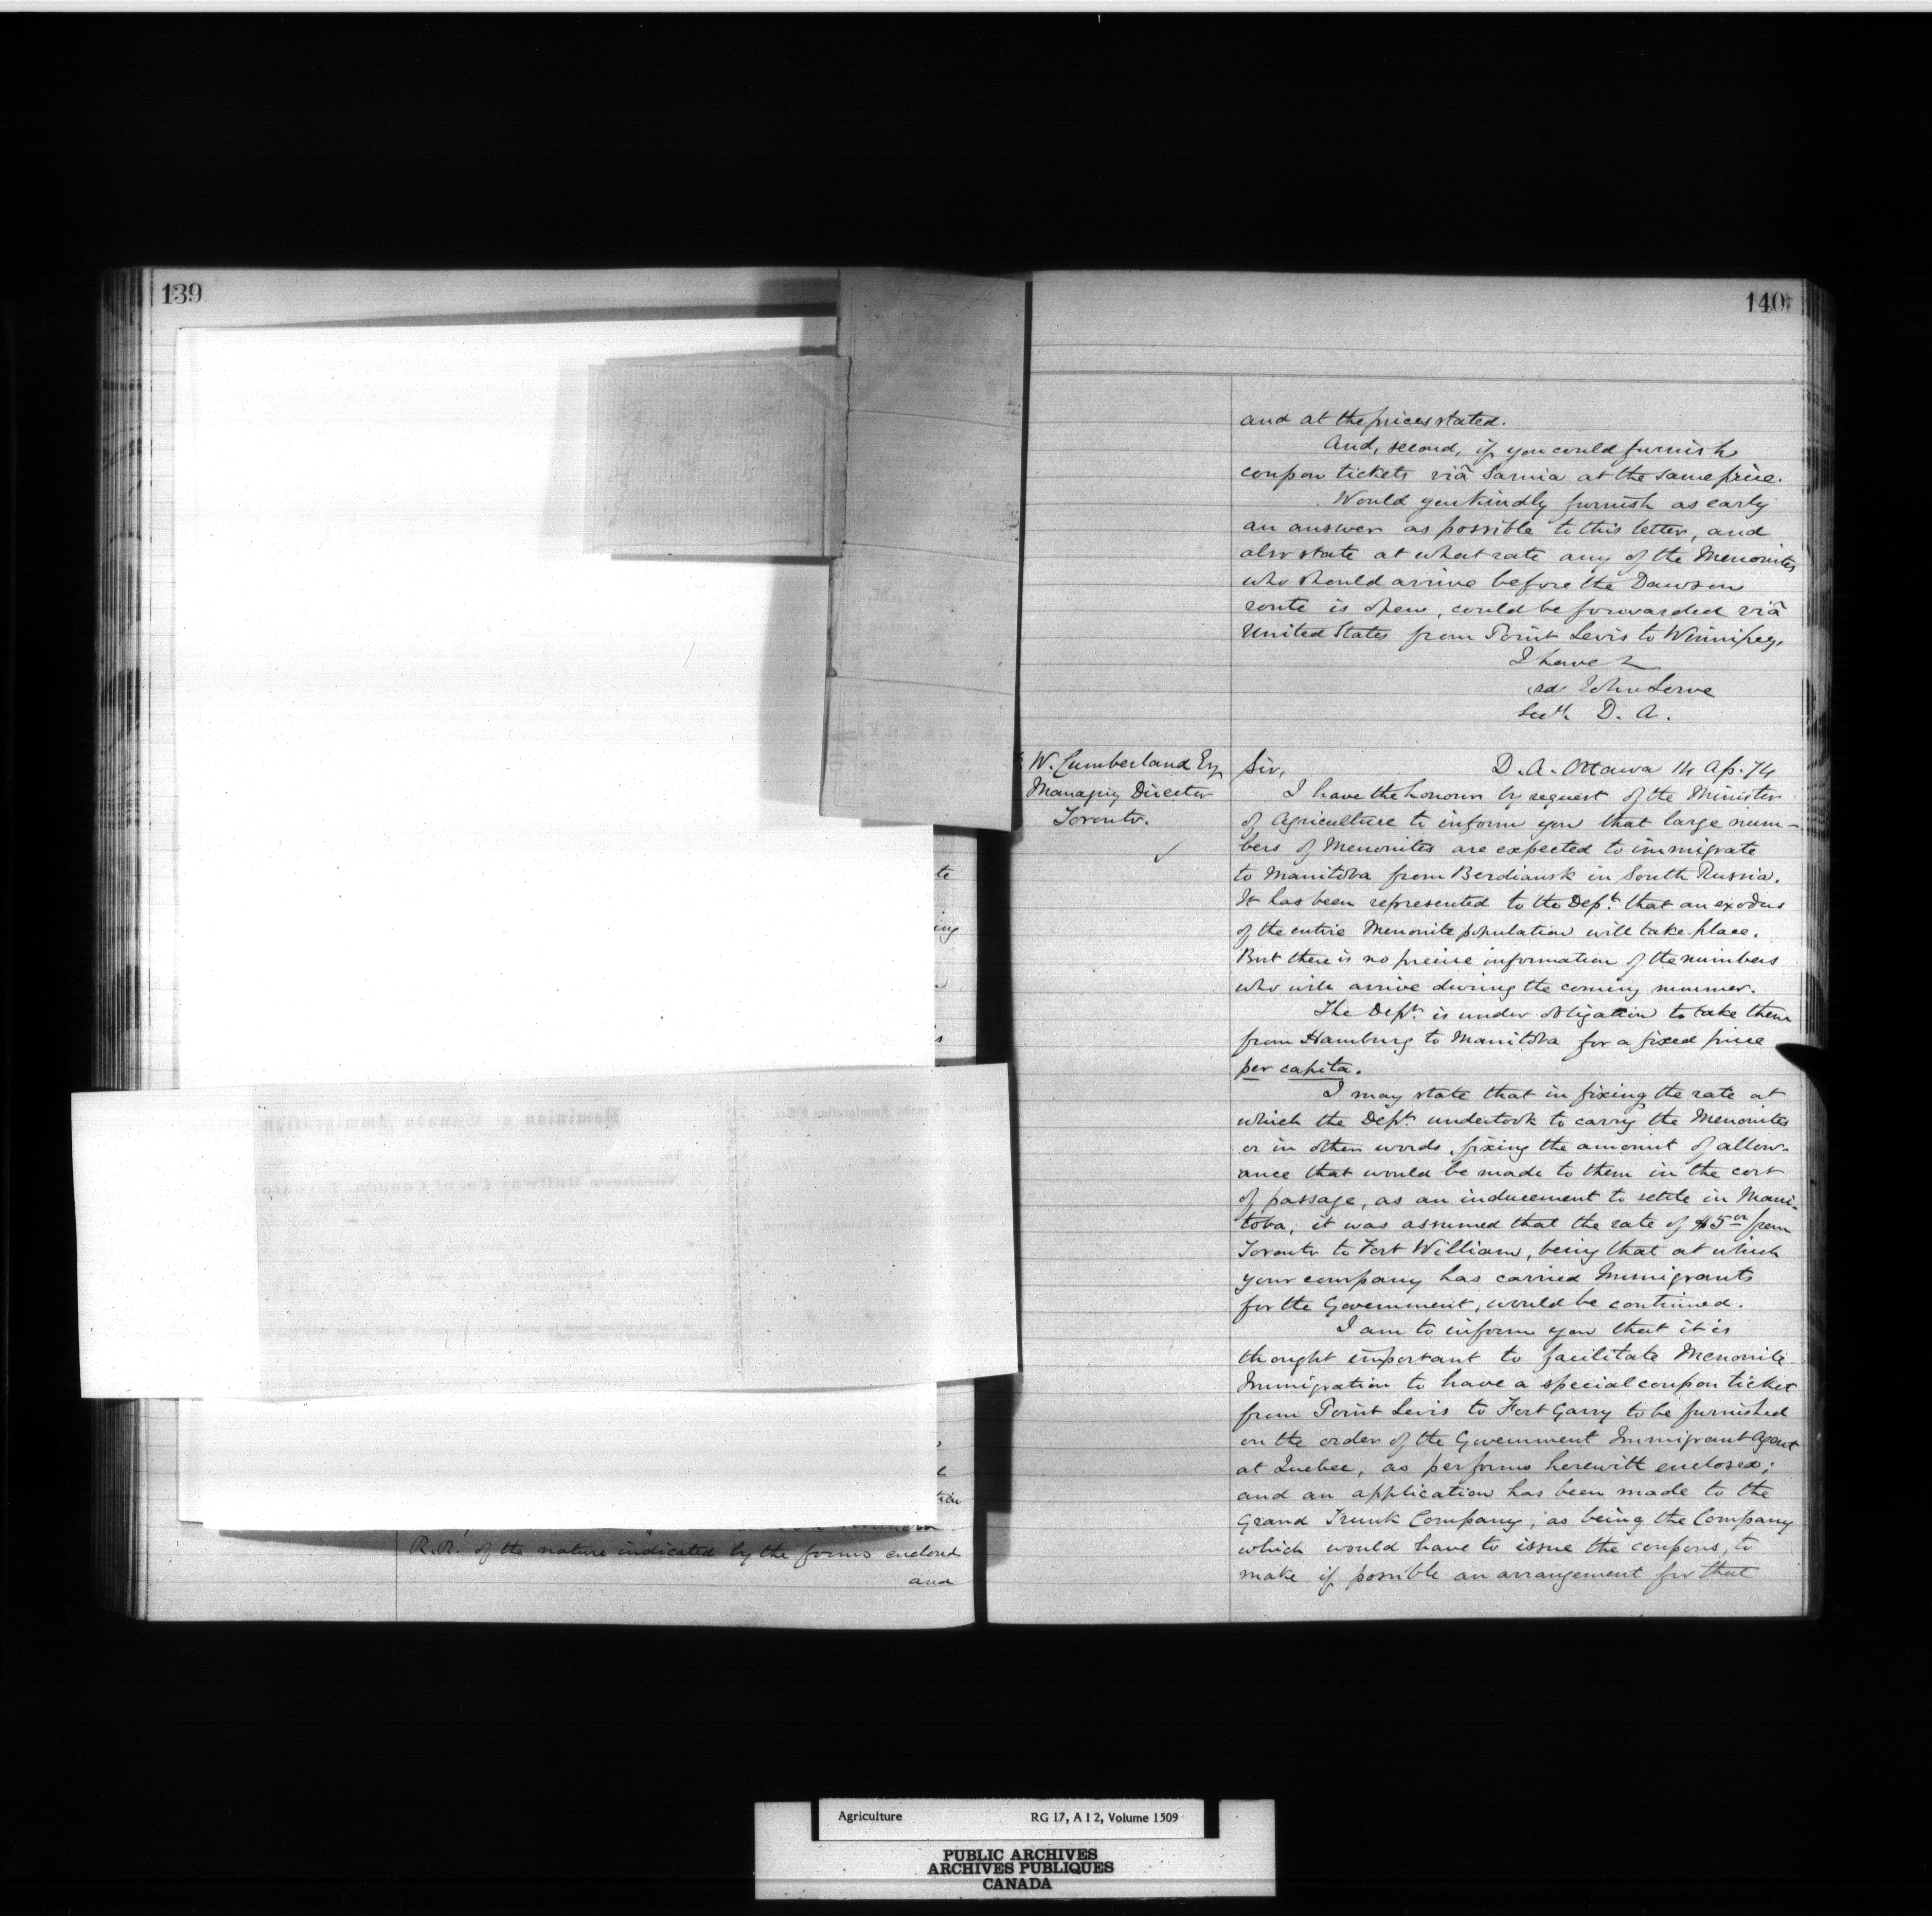 139
te
ing
s
R.R. of the nature indicated by the forms enclosed
and
140
and at the prices stated.
And, second, if you could furnish
coupon tickets viâ Sarnia at the same price.
Would you kindly furnish as early
an answer as possible to this letter, and
also state at what rate any of the Menonites
who should arrive before the Dawson
route is open, could be forwarded viâ
United States from Point Levis to Winnipeg.
I have &
sd John Lowe
Secy. D. A.
W. Cumberland Esq
Managing Director
Toronto.
Sir, D. A. Ottawa 14 Ap. 74
I have the honour by request of the Minister
of Agriculture to inform you that large num-
bers of Menonites are expected to immigrate
to Manitoba from Berdiansk in South Russia.
It has been represented to the Dept. that an exodus
of the entire Menonite population will take place.
But there is no precise information of the numbers
who will arrive during the coming summer.
The Dept. is under obligation to take them
from Hamburg to Manitoba for a fixed price
per capita.
I may state that in fixing the rate at
which the Dept. undertook to carry the Menonites
or in other words, fixing the amount of allow-
ance that would be made to them in the cost
of passage, as an inducement to settle in Mani-
toba, it was assumed that the rate of $5 from
Toronto to Fort William, being that at which
your company has carried Immigrants
for the Government, would be continued.
I am to inform you that it is
thought important to facilitate Menonite
Immigration to have a special coupon ticket
from Point Levis to Fort Garry to be furnished
on the order of the Government Immigrant Agent
at Quebec, as per forms herewith enclosed;
and an application has been made to the
Grand Trunk Company, as being the Company
which would have to issue the coupons, to
make if possible an arrangement for that
Agriculture RG 17, A I 2, Volume 1509
PUBLIC ARCHIVES
ARCHIVES PUBLIQUES
CANADA